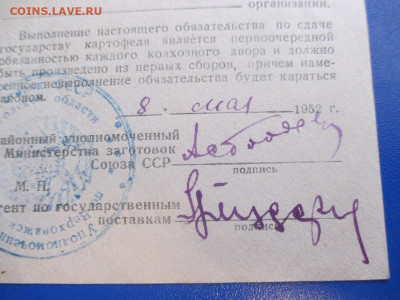 COINS.LAVE.RU
организации.
Выполнение настоящего обязательства по сдаче
государству картофеля является первоочередной
обязанностью каждого колхозного двора и должно
быть произведено из первых сборов, причем наме-
ренное невыполнение обязательства будет караться
законом.
8. мая 1952 г.
районный уполномоченный
Министерства заготовок
Союза ССР
подпись
М. П.
гент по государственным
поставкам
подпись